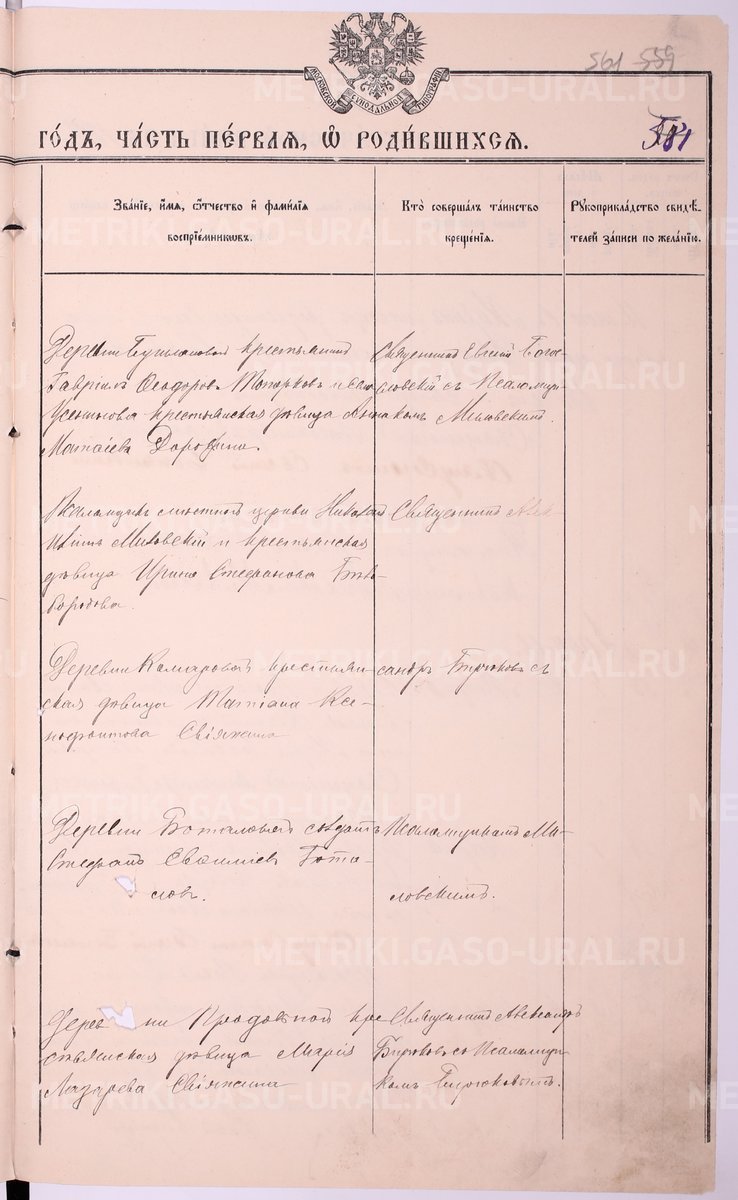 561 559
МОСКОВСКОЙ СѴНОДАЛЬНОЙ ТИПОГРАФІИ
ГО́ДЪ, ЧА́СТЬ ПЕ́РВАЯ, Ѡ РОДИ́ВШИХСЯ.
381
Зва́нїе, и́мя, ѻ҆́тчество и҆ фами́лїя воспрїе́мникѡвъ.
Кто̀ соверша́лъ та́инство креще́нїя.
Рꙋкоприкла́дство свидѣ́телей за́писи по жела́нїю.
Деревни крестьянинъ
Гавріилъ Ѳеодоровъ Топорковъ и села
крестьянская дѣвица Анна
Матѳіева Дорофина.
Священникъ Евгеній Бого-
словскій съ Псаломщи-
комъ Миловскимъ.
Псаломщикъ мѣстной церкви Николай
Миловскій и крестьянская
дѣвица Ирина Стефанова Бѣло-
бородова.
Священникъ Алек-
Деревни Комаровой крестьян-
ская дѣвица Татіана Ксе-
нофонтова Свіяжина
сандръ Бирюковъ съ
Деревни Боталовой солдатъ
Стефанъ Евѳиміевъ Бота-
ловъ.
Псаломщикомъ Ми-
ловскимъ.
Деревни кре
стьянская дѣвица Марія
Лазарева Свіяжина
Священникъ Александръ
Бирюковъ съ Псаломщи-
комъ Бирюковымъ.
METRIKI.GASO-URAL.RU